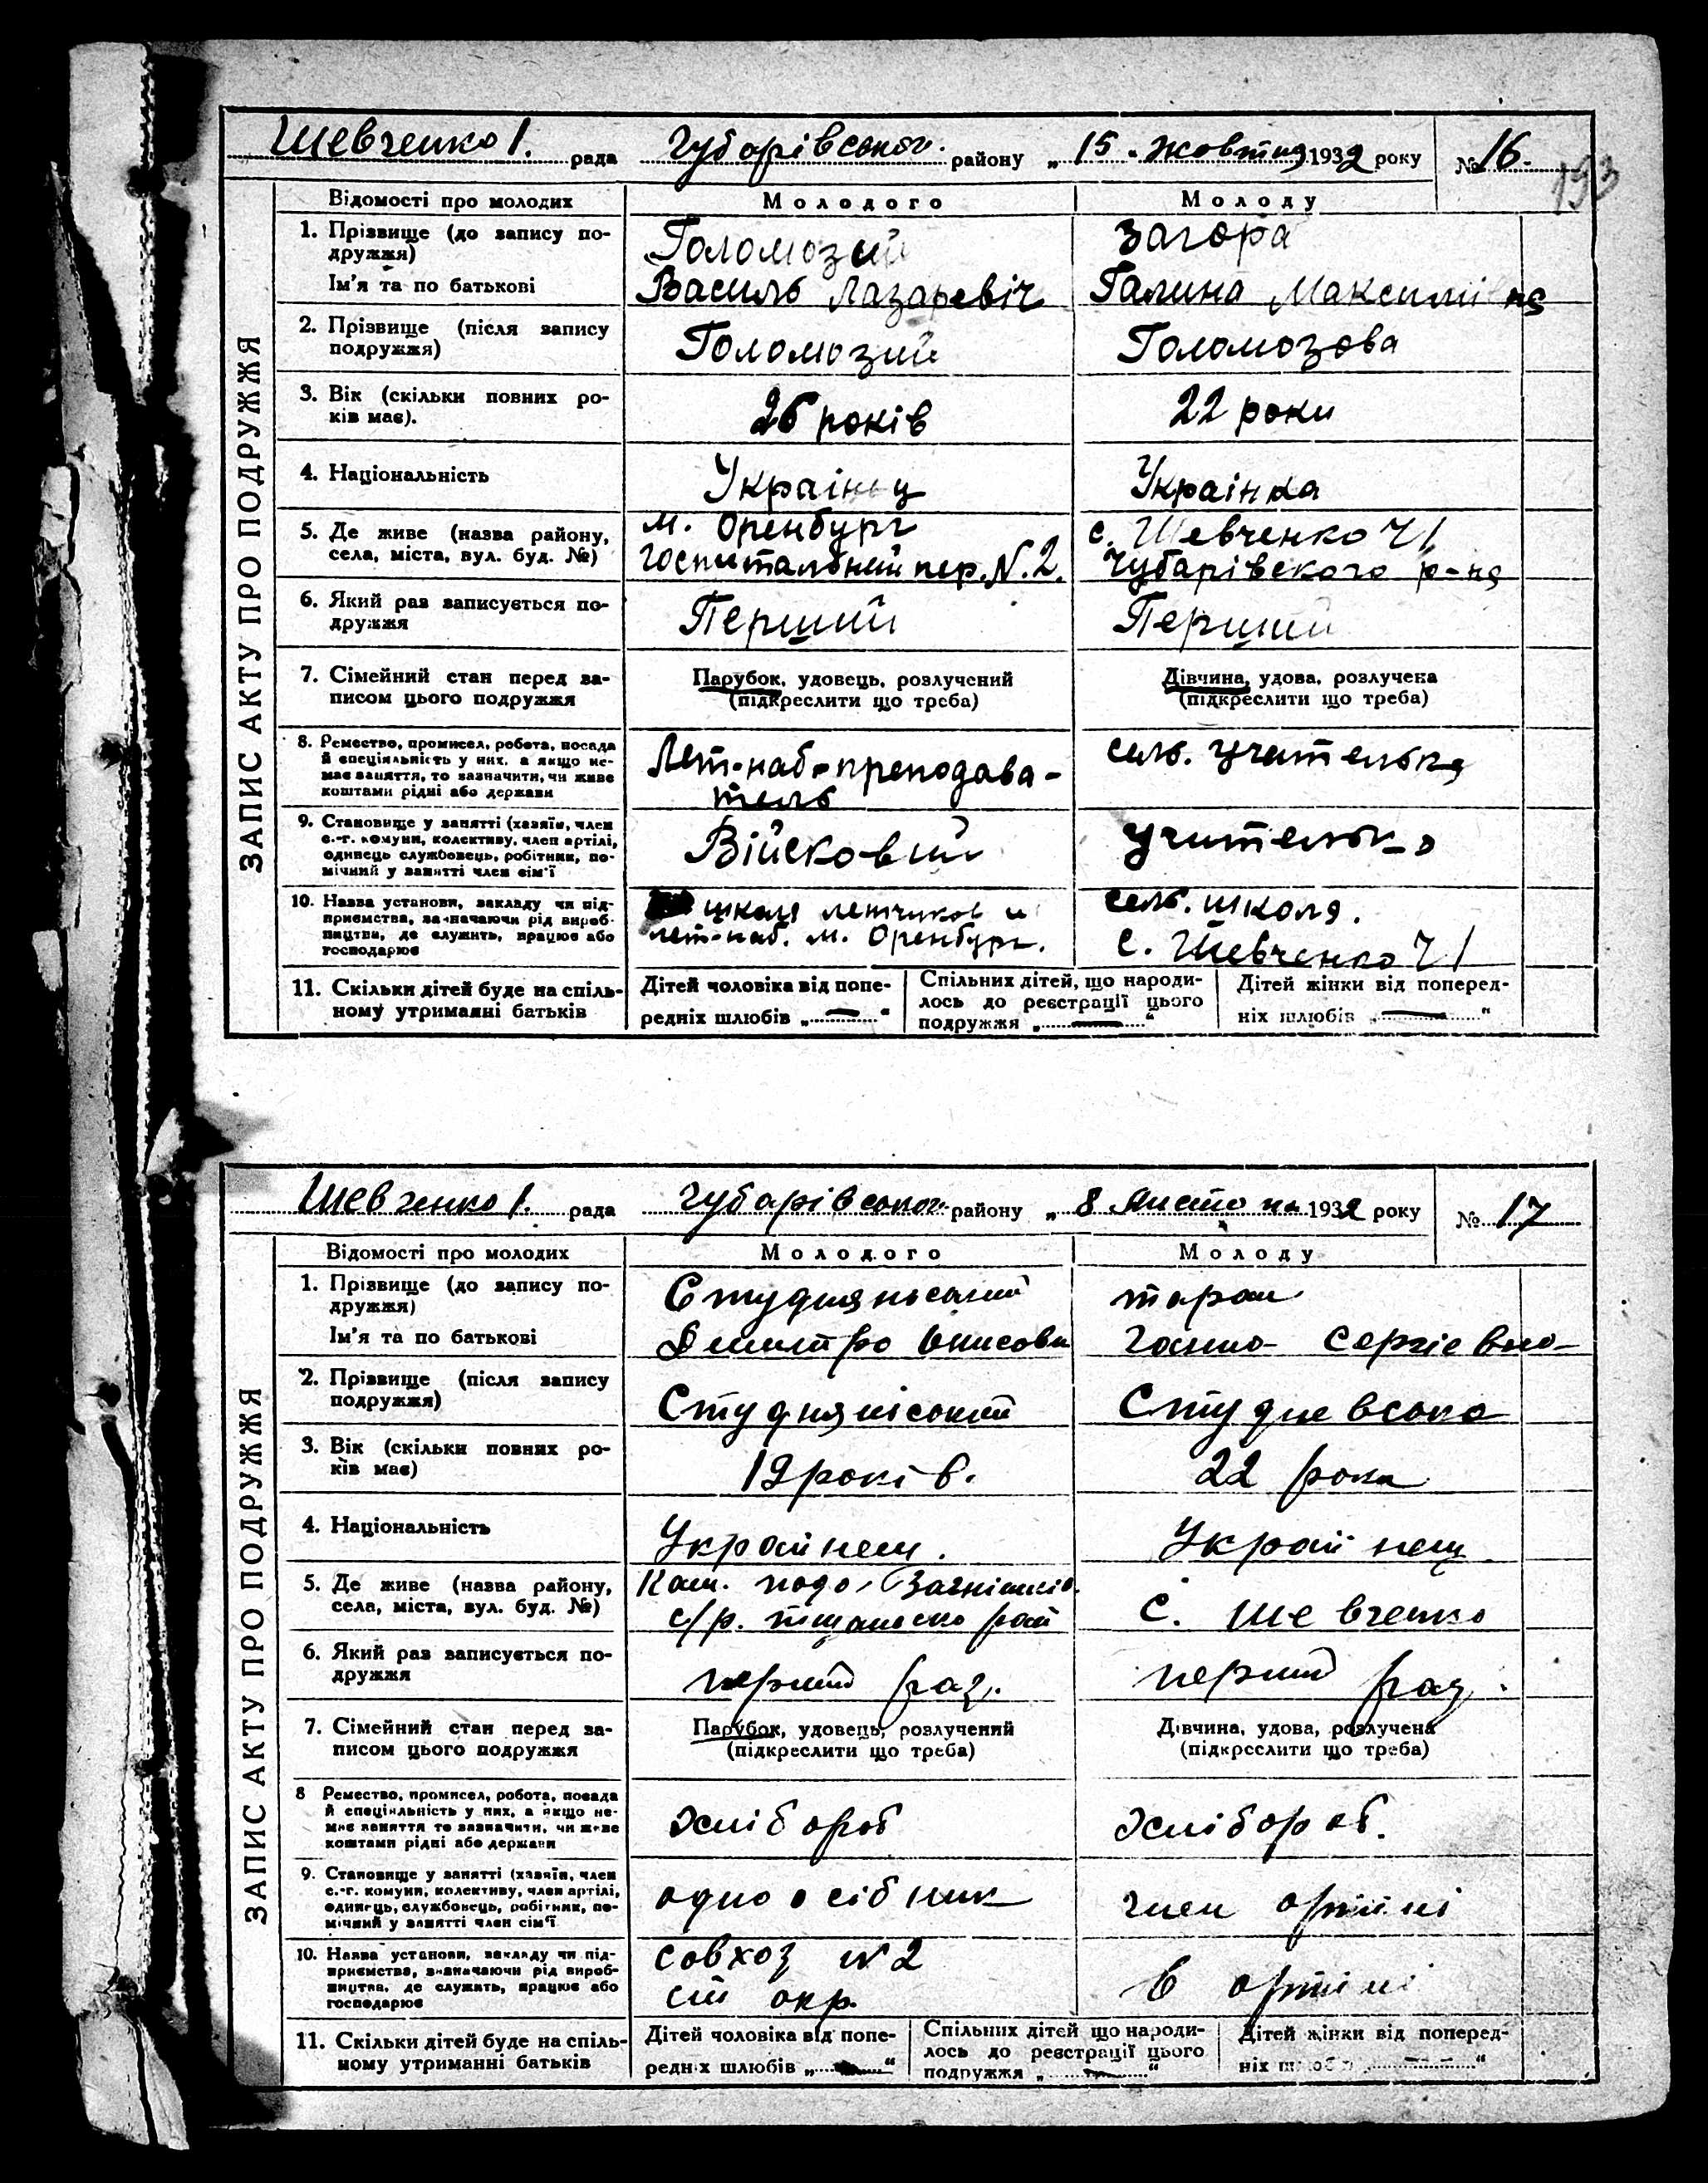 Шевченко 1. рада Чубарівськог. району „15" жовтня 1932 року № 16.
193
Відомості про молодих
Молодого
Молоду
ЗАПИС АКТУ ПРО ПОДРУЖЖЯ
1. Прізвище (до запису по-
дружжя)
Ім'я та по батькові
Голомозий
Василь Лазаревіч
Загора
Галина Максимівна
2. Прізвище (після запису
подружжя)
Голомозий
Голомозова
3. Вік (скільки повних ро-
ків має).
26 років
22 роки
4. Національність
Украінец
Украінка
5. Де живе (назва району,
села, міста, вул. буд. №)
м. Оренбург
Госпитальний пер. N. 2.
с. Шевченко Ч/
Чубарівского р-на
6. Який раз записується по-
дружжя
Перший
Перший
7. Сімейний стан перед за-
писом цього подружжя
Парубок, удовець, розлучений
(підкреслити що треба)
Дівчина, удова, розлучена
(підкреслити що треба)
8. Ремество, промисел, робота, посада
й спеціяльність у них, а якщо не-
має заняття, то зазначити, чи живе
коштами рідні або держави
Лет-наб-преподава-
тель
сель. учителька
9. Становище у занятті (хазяїн, член
с.-г. комуни, колективу, член артілі,
одинець службовець, робітник, по-
мічний у занятті член сім'ї
Війсковий
учителька
10. Назва установи, закладу чи під-
приємства, зазначаючи рід вироб-
ництва, де служить, працює або
господарює
школа летчиков и
лет-наб. м. Оренбург.
сель. школа.
с. Шевченко Ч/
11. Скільки дітей буде на спіль-
ному утриманні батьків
Дітей чоловіка від попе-
редніх шлюбів „—"
Спільних дітей, що народи-
лось до реєстрації цього
подружжя „—"
Дітей жінки від поперед-
ніх шлюбів „—"
Шевченко 1. рада Чубарівськог. району „8 Листопа 1932 року № 17
Відомості про молодих
Молодого
Молоду
ЗАПИС АКТУ ПРО ПОДРУЖЖЯ
1. Прізвище (до запису по-
дружжя)
Ім'я та по батькові
Дмитро
таран
Ганна Сергіевна
2. Прізвище (після запису
подружжя)
Студневська
3. Вік (скільки повних ро-
ків має)
19 років.
22 роки
4. Національність
Українец.
Українец
5. Де живе (назва району,
села, міста, вул. буд. №)
Кам. подо,
с/р.
с. Шевченко
6. Який раз записується по-
дружжя
перший раз.
перший раз.
7. Сімейний стан перед за-
писом цього подружжя
Парубок, удовець, розлучений
(підкреслити що треба)
Дівчина, удова, розлучена
(підкреслити що треба)
8 Ремество, промисел, робота, посада
й спеціяльність у них, а якщо не-
має заняття то зазначити, чи живе
коштами рідні або держави
хлібороб
хлібороб.
9. Становище у занятті (хазяїн, член
с.-г. комуни, колективу, член артілі,
одинець, службовець, робітник, по-
мічний у занятті член сім'ї
одноосібник
член артілі
10. Назва установи, закладу чи під-
приємства, зазначаючи рід вироб-
ництва, де служить, працює або
господарює
совхоз N 2
окр.
в артілі
11. Скільки дітей буде на спіль-
ному утриманні батьків
Дітей чоловіка від попе-
редніх шлюбів „—"
Спільних дітей що народи-
лось до реєстрації цього
подружжя „—"
Дітей жінки від поперед-
ніх шлюбів „—"